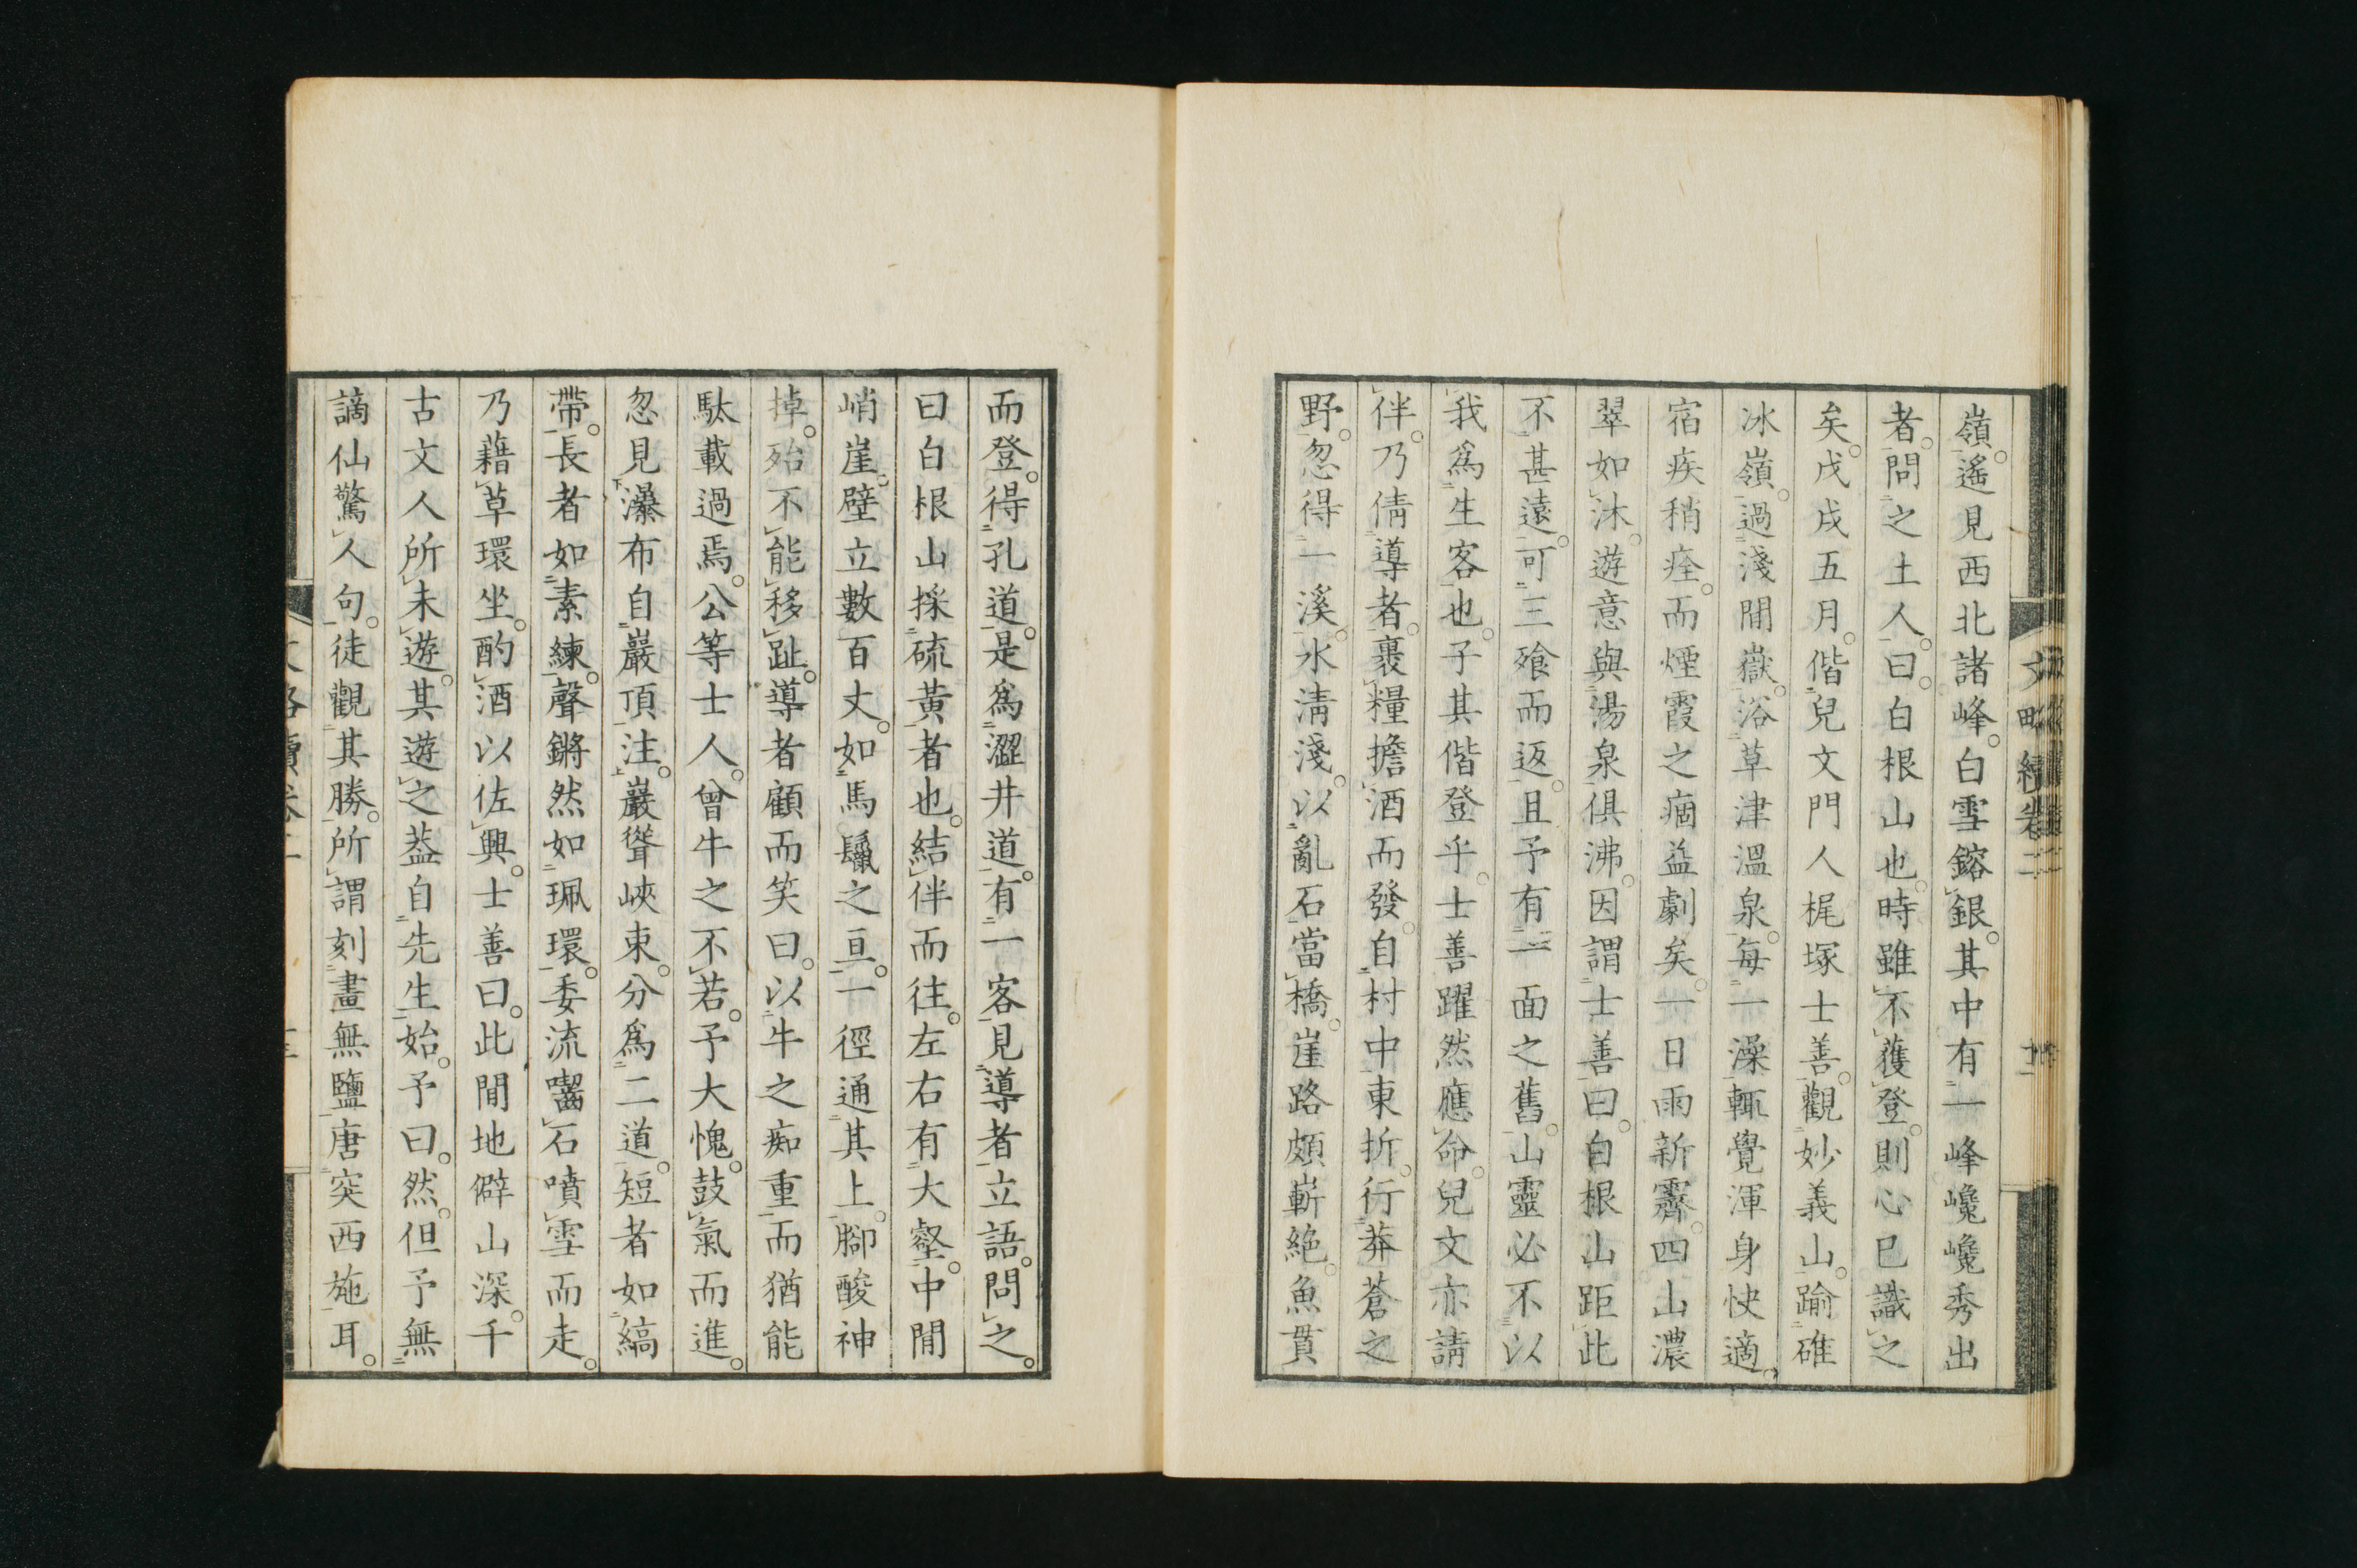 嶺。遙見西北諸峰。白雪鎔銀。其中有一峰巉巉秀出
者。問之土人。曰。白根山也。時雖不獲登。則心已識之
矣。戊戌五月。偕兒文門人梶塚士善。觀妙義山。踰碓
冰嶺。過淺間嶽。浴草津溫泉。每一澡輒覺渾身快適。
宿疾稍痊。而煙霞之痼益劇矣。一日雨新霽。四山濃
翠如沐。遊意與湯泉俱沸。因謂士善曰。白根山距此
不甚遠。可三飱而返。且予有一面之舊。山靈必不以
我爲生客也。子其偕登乎。士善躍然應命。兒文亦請
伴。乃倩導者。裹糧擔酒而發。自村中東折。行莽蒼之
野。忽得一溪。水淸淺。以亂石當橋。崖路頗嶄絕。魚貫
而登。得孔道。是爲澀井道。有一客見導者立語。問之。
曰白根山採硫黃者也。結伴而往。左右有大壑。中間
峭崖壁立數百丈。如馬鬛之亘。一徑通其上。腳酸神
掉。殆不能移趾。導者顧而笑曰。以牛之痴重而猶能
駄載過焉。公等士人。曾牛之不若。予大愧。鼓氣而進。
忽見瀑布自巖頂注。巖聳峽束。分爲二道。短者如縞
帶。長者如素練。聲鏘然如珮環。委流囓石噴雪而走。
乃藉草環坐。酌酒以佐興。士善曰。此間地僻山深。千
古文人所未遊。其遊之葢自先生始。予曰。然。但予無
謫仙驚人句。徒觀其勝。所謂刻畫無鹽。唐突西施耳。